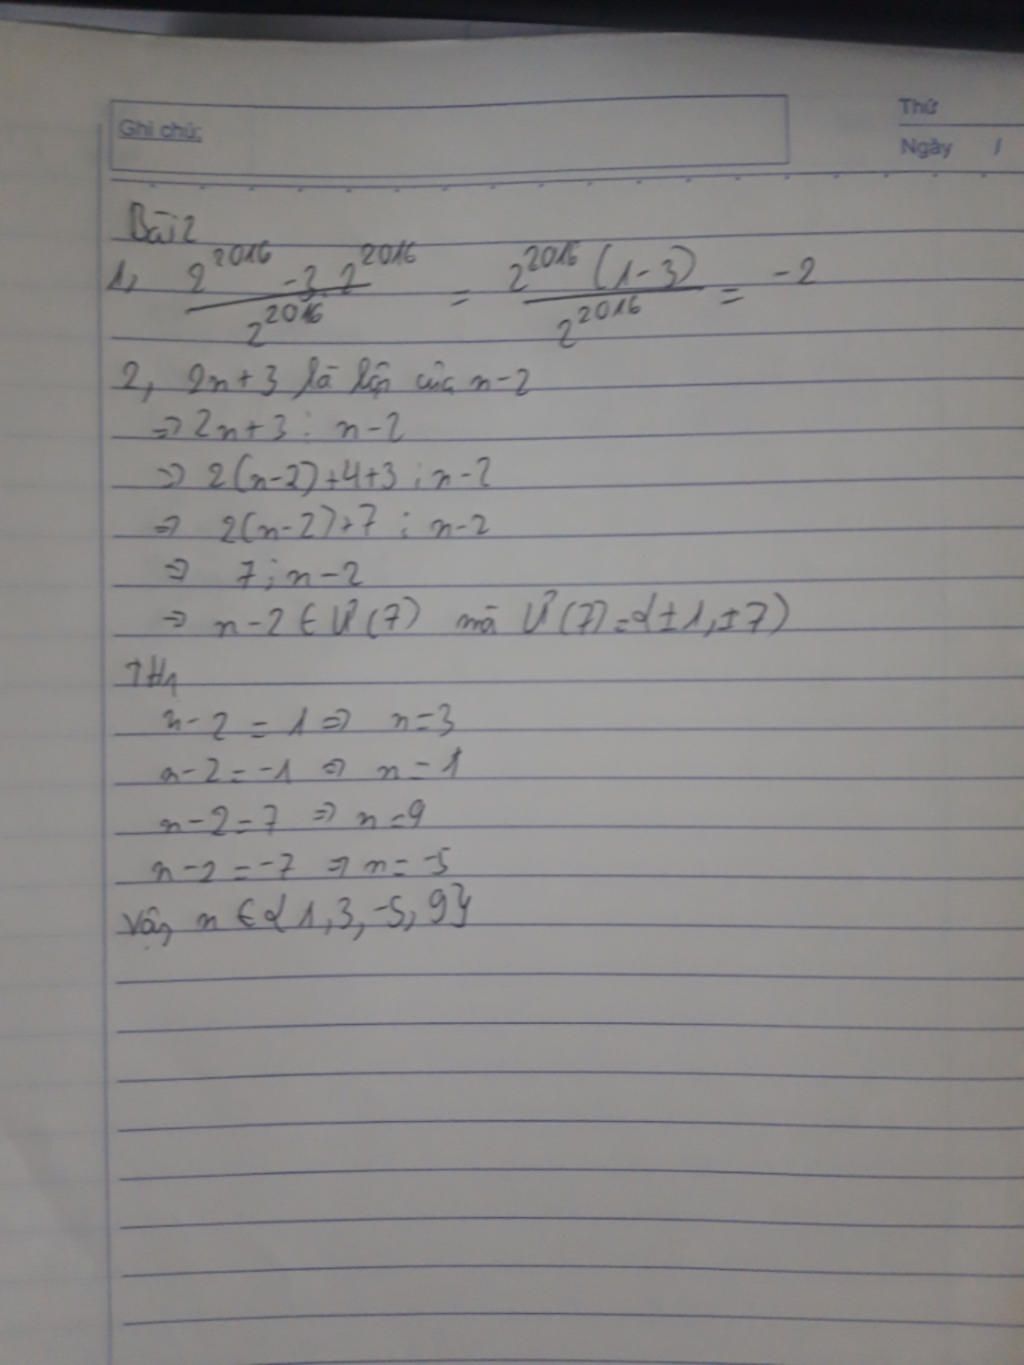 Ghi chú:
Thứ
Ngày /
Bài 2
1, (2^2016 - 3.2^2016) / 2^2016 = 2^2016 (1-3) / 2^2016 = -2
2, 2n+3 là bội của n-2
=> 2n+3 ⋮ n-2
=> 2(n-2)+4+3 ⋮ n-2
=> 2(n-2)+7 ⋮ n-2
=> 7 ⋮ n-2
=> n-2 ∈ Ư(7) mà Ư(7)={±1,±7)
TH1
n-2 = 1 => n=3
n-2 = -1 => n = 1
n-2=7 => n=9
n-2 = -7 => n = -5
Vậy n ∈ {1,3,-5,9}